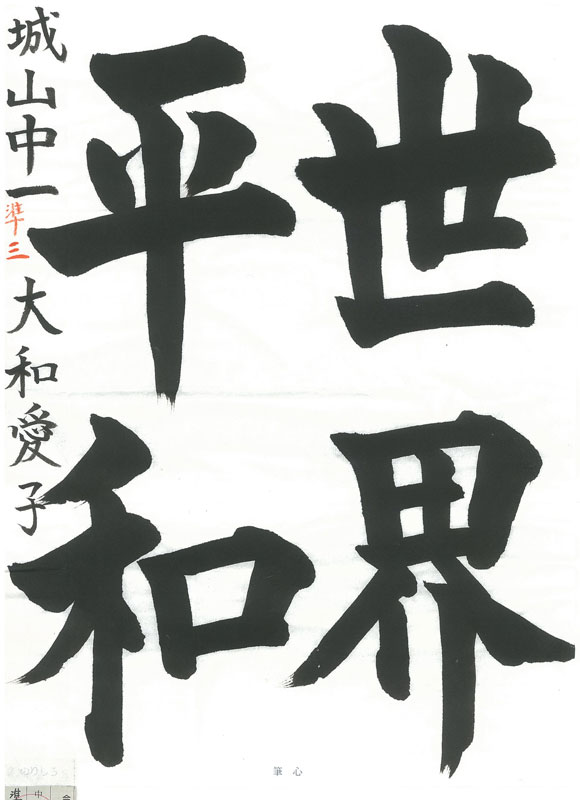 世界
平和
城山中一 準三 大和愛子
心筆
準 中